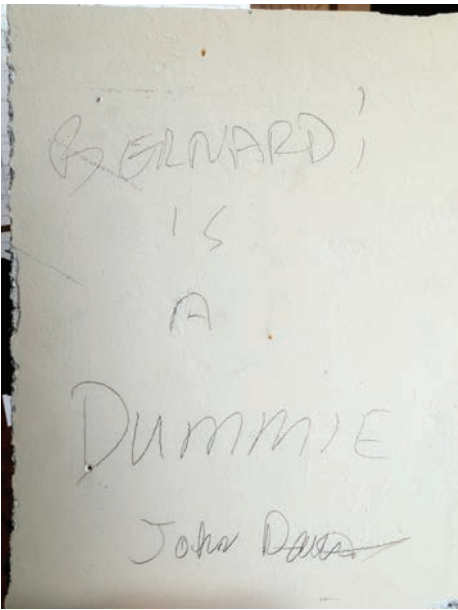 BERNARD!
IS
A
DUMMIE
John